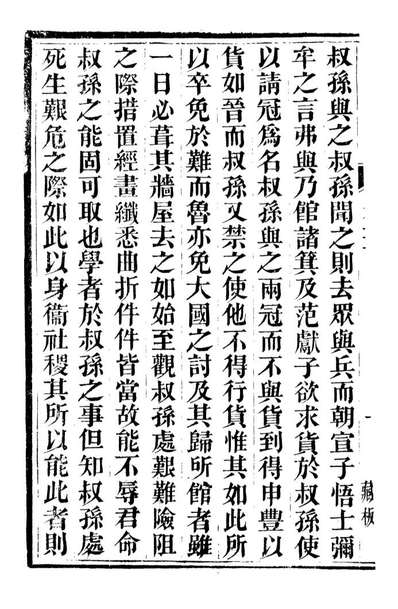 叔孫與之叔孫聞之則去眾與兵而朝宣子悟士彌
牟之言弗與乃館諸箕及范獻子欲求貨於叔孫使
以請冠爲名叔孫與之兩冠而不與貨到得申豐以
貨如晉而叔孫又禁之使他不得行貨惟其如此所
以卒免於難而魯亦免大國之討及其歸所館者雖
一日必葺其牆屋去之如始至觀叔孫處艱難險阻
之際措置經畫纖悉曲折件件皆當故能不辱君命
叔孫之能固可取也學者於叔孫之事但知叔孫處
死生艱危之際如此以身衞社稷其所以能此者則
藏板